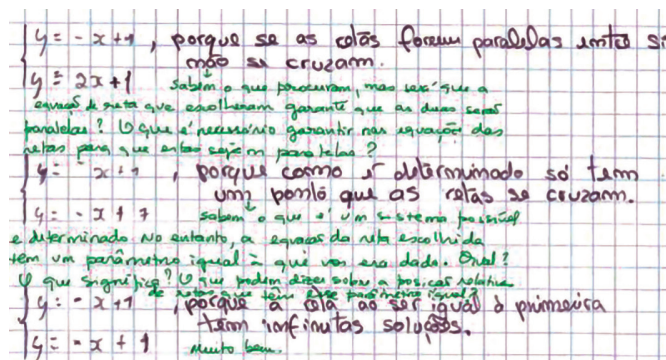 y = - x + 1, porque se as retas forem paralelas entre si
não se cruzam.
y = 2x + 1 sabem o que procuram, mas será que a
equação de reta que escolheram garante que as duas serão
paralelas? O que é necessário garantir nas equações das
retas para que estas sejam paralelas?
y = - x + 1, porque como é determinado só tem
um ponto que as retas se cruzam.
y = - x + 7 sabem o que é um sistema possível
e determinado No entanto, a equação da reta escolhida
tem um parâmetro igual à que vos era dada. Qual?
O que significa? O que podem dizer sobre a posição relativa
de retas que têm esse parâmetro igual?
y = - x + 1, porque a reta ao ser igual à primeira
tem infinitas soluções.
y = - x + 1 Muito bem.